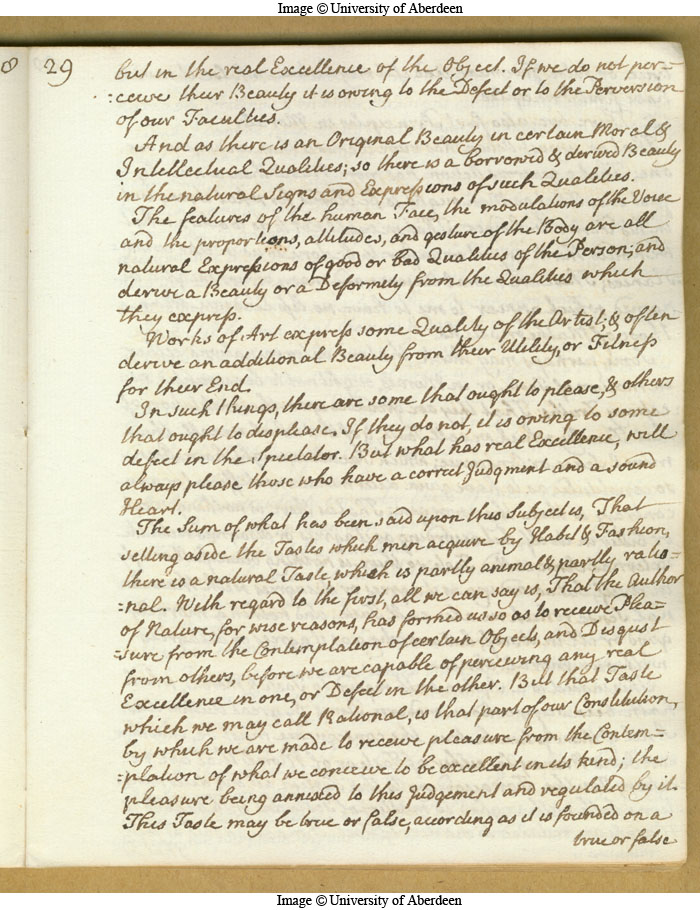 Image © University of Aberdeen
8
29
but in the real Excellence of the Object. If we do not per=
:ceive their Beauty it is owing to the Defect or to the Perversion
of our Faculties.
And as there is an Original Beauty in certain Moral &
Intellectual Qualities; so there is a borrowed & derived Beauty
in the natural Signs and Expressions of such Qualities.
The features of the human Face, the modulations of the Voice
and the proportions, attitudes, and gesture of the Body are all
natural Expressions of good or bad Qualities of the Person; and
derive a Beauty or a Deformity from the Qualities which
they express.
Works of Art express some Quality of the Artist; & often
derive an additional Beauty from their Utility, or Fitness
for their End.
In such things, there are some that ought to please, & others
that ought to displease. If they do not, it is owing to some
defect in the Spectator. But what has real Excellence, will
always please those who have a correct Judgment and a sound
Heart.
The Sum of what has been said upon this Subject is, That
setting aside the Tastes which men acquire by Habit & Fashion,
there is a natural Taste, which is partly animal & partly ratio=
:nal. With regard to the first, all we can say is, That the Author
of Nature, for wise reasons, has formed us so as to receive Plea=
:sure from the Contemplation of certain Objects, and Disgust
from others, before we are capable of perceiving any real
Excellence in one, or Defect in the other. But that Taste
which we may call Rational, is that part of our Constitution,
by which we are made to receive pleasure from the Contem=
:plation of what we conceive to be excellent in its kind; the
pleasure being annexed to this Judgement and regulated by it.
This Taste may be true or false, according as it is founded on a
true or false
Image © University of Aberdeen